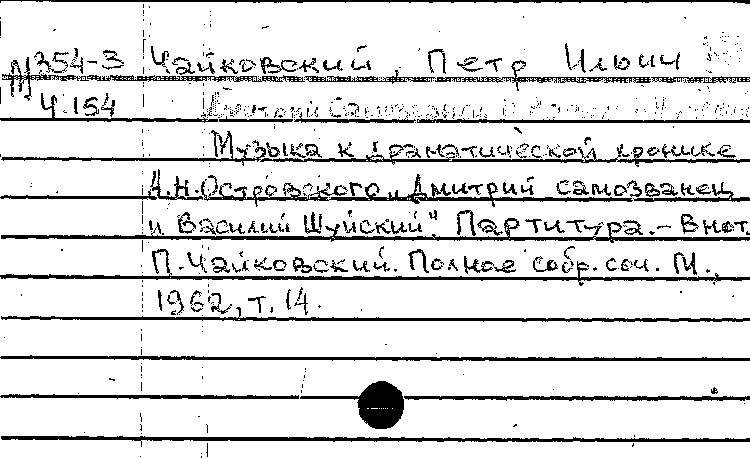 М354-3 Чайковский, Петр Ильич
Ч.154 Дмитрий Самозванец и Василий Шуйский
Музыка к драматической хронике
А.Н.Островского „Дмитрий самозванец
и Василий Шуйский". Партитура.- В нот.
П.Чайковский. Полное собр. соч. М.,
1962, т. 14.